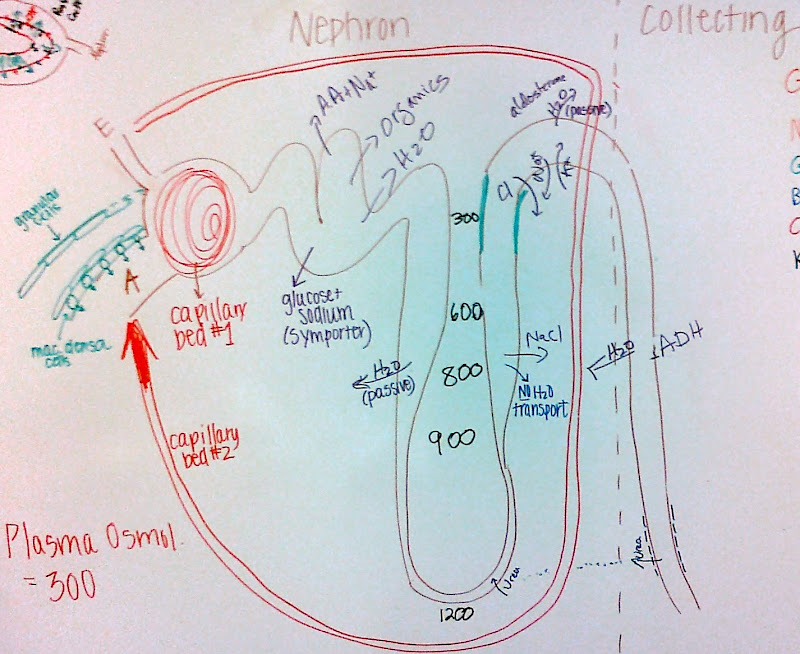 Nephron
Collecting
E
AA+Na+
organics
H2O
aldosterone
H2O
(passive)
granular
cells
mac. densa
cells
A
capillary
bed #1
glucose+
sodium
(symporter)
Cl
300
600
800
900
1200
NaCl
NO H2O
transport
H2O
(passive)
H2O
ADH
capillary
bed #2
Plasma Osmol.
= 300
Urea
Urea
G
N
G
B
C
K